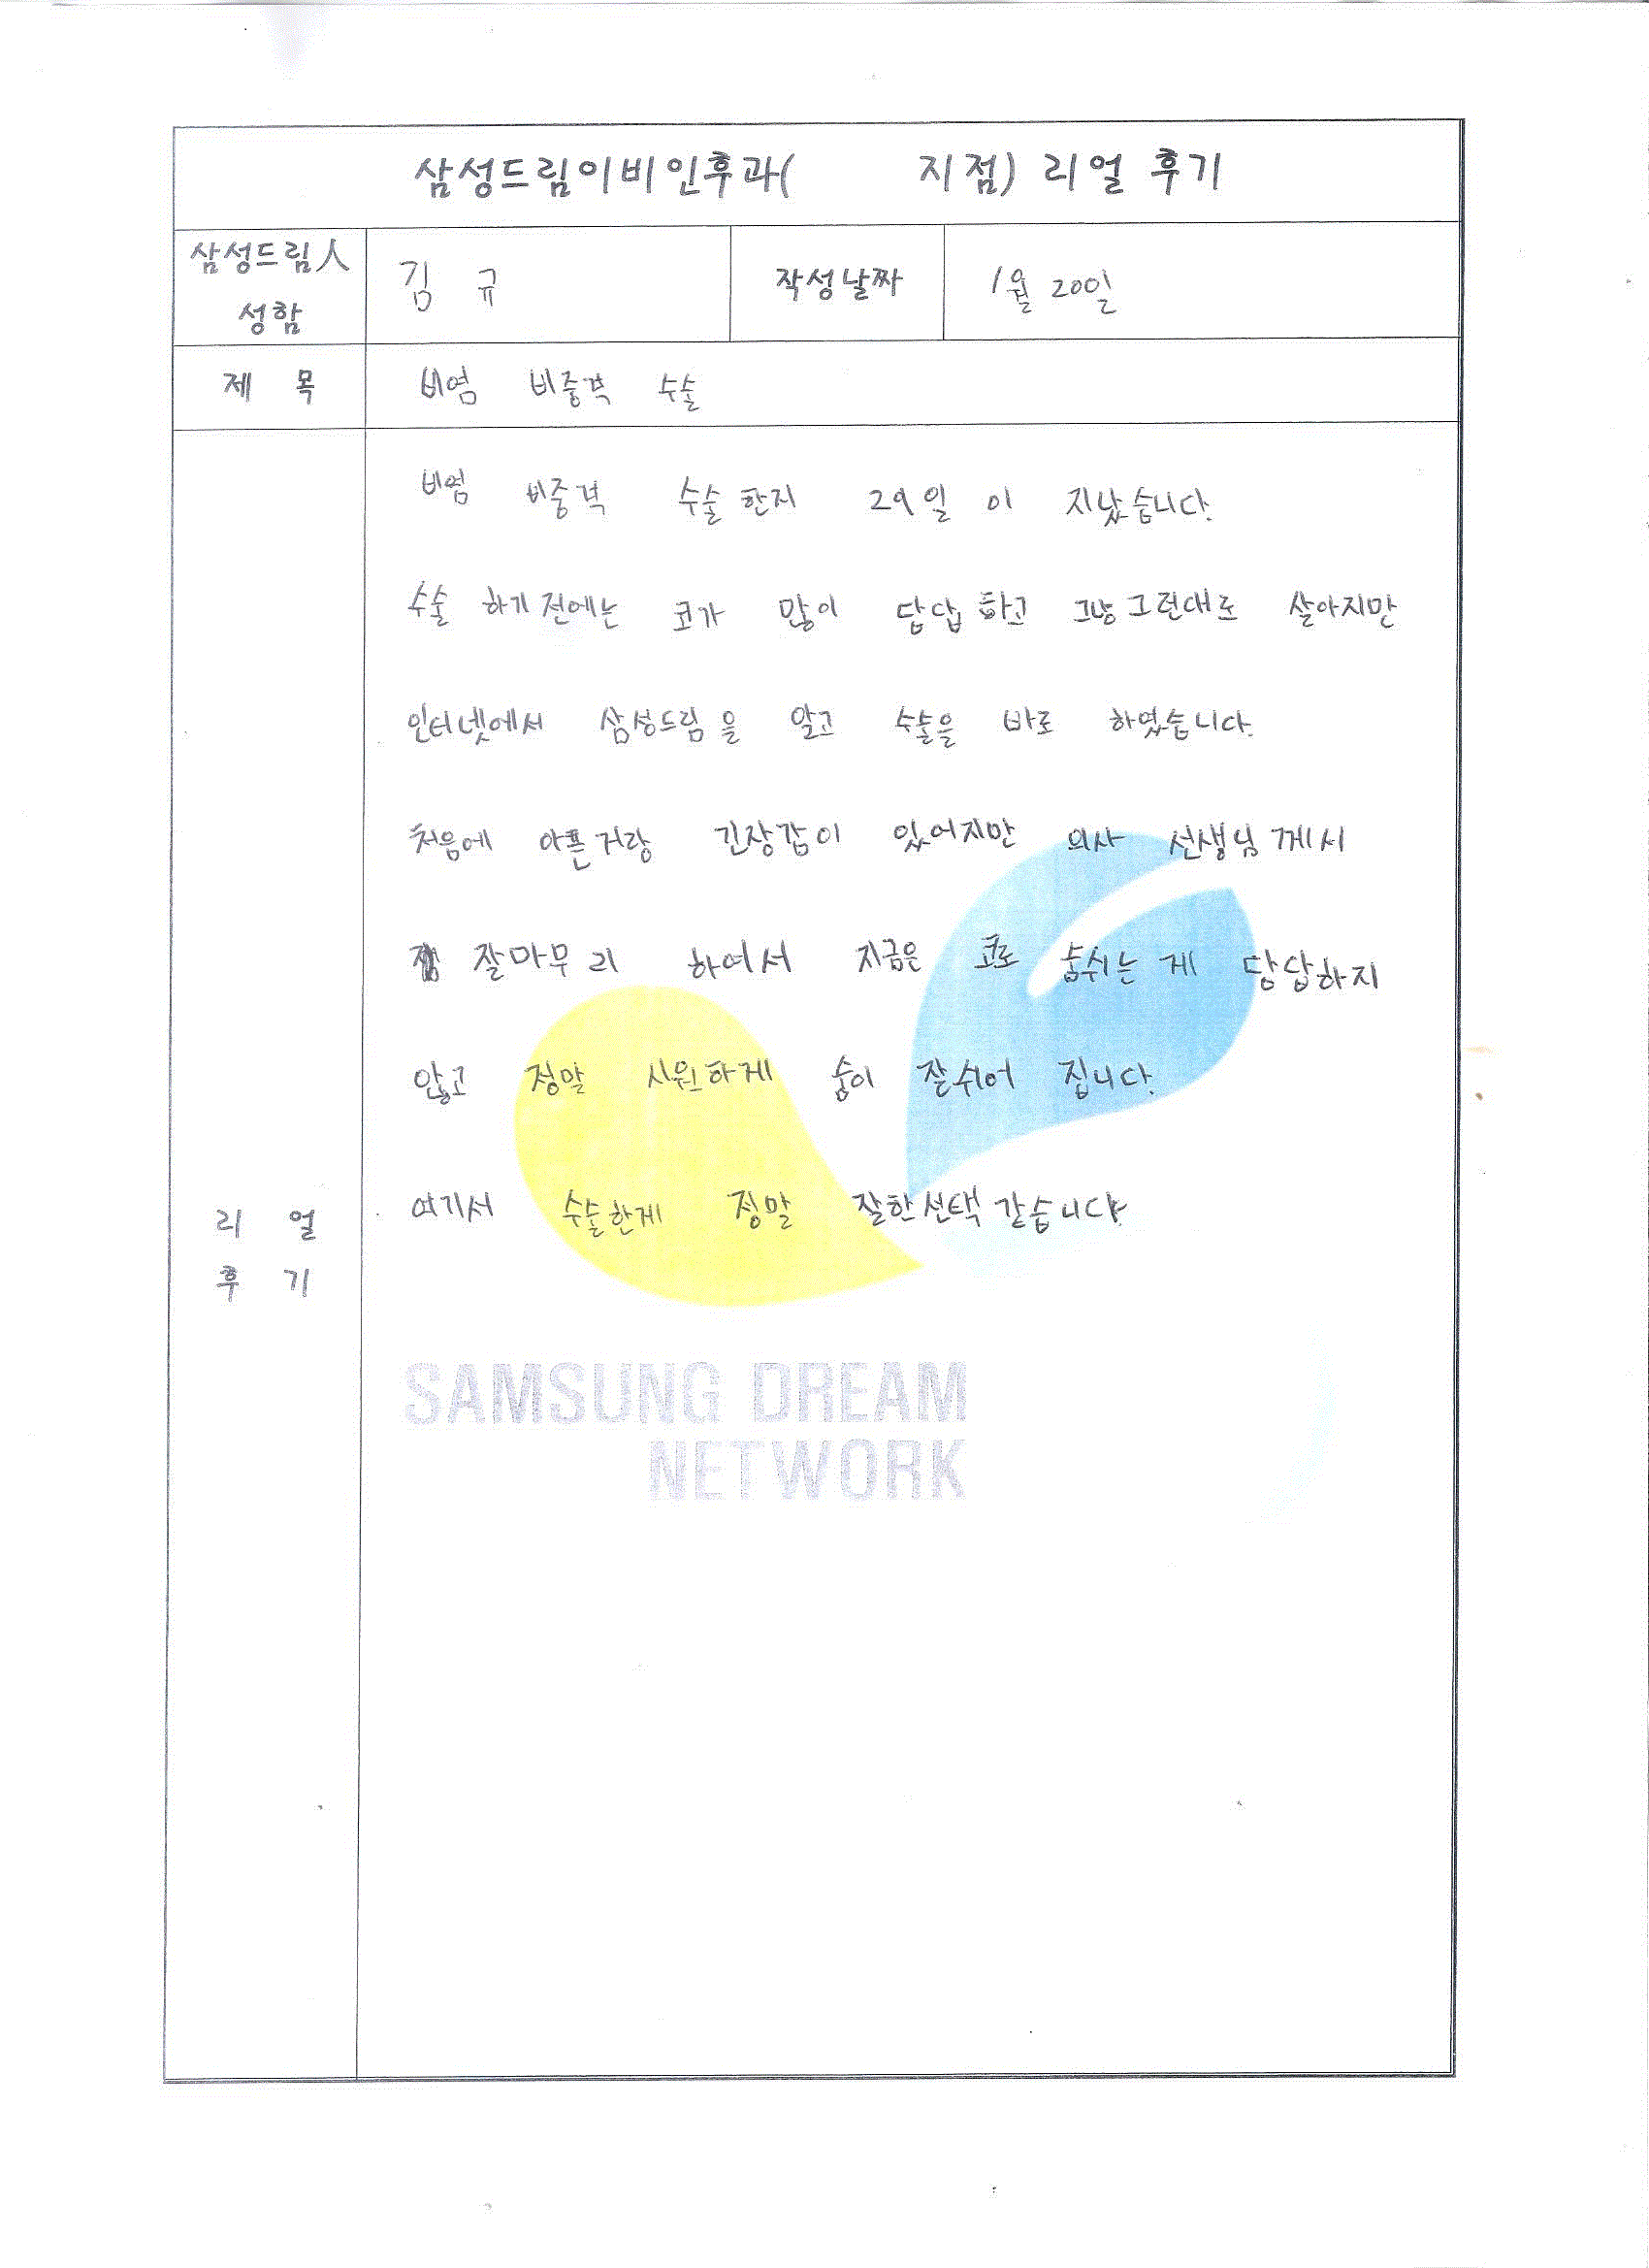 삼성드림이비인후과( 지점) 리얼 후기
삼성드림人
성함
김 규
작성날짜
1월 20일
제 목
비염 비중격 수술
비염 비중격 수술한지 29일 이 지났습니다.
수술 하기전에는 코가 많이 답답하고 그냥그런대로 살아지만
인터넷에서 삼성드림을 알고 수술을 바로 하였습니다.
처음에 아픈거랑 긴장감이 있어지만 의사 선생님께서
잘마무리 하여서 지금은 코로 숨쉬는게 당답하지
않고 정말 시원하게 숨이 잘쉬어 집니다.
여기서 수술한게 정말 잘한선택같습니다
리 얼
후 기
SAMSUNG DREAM
NETWORK